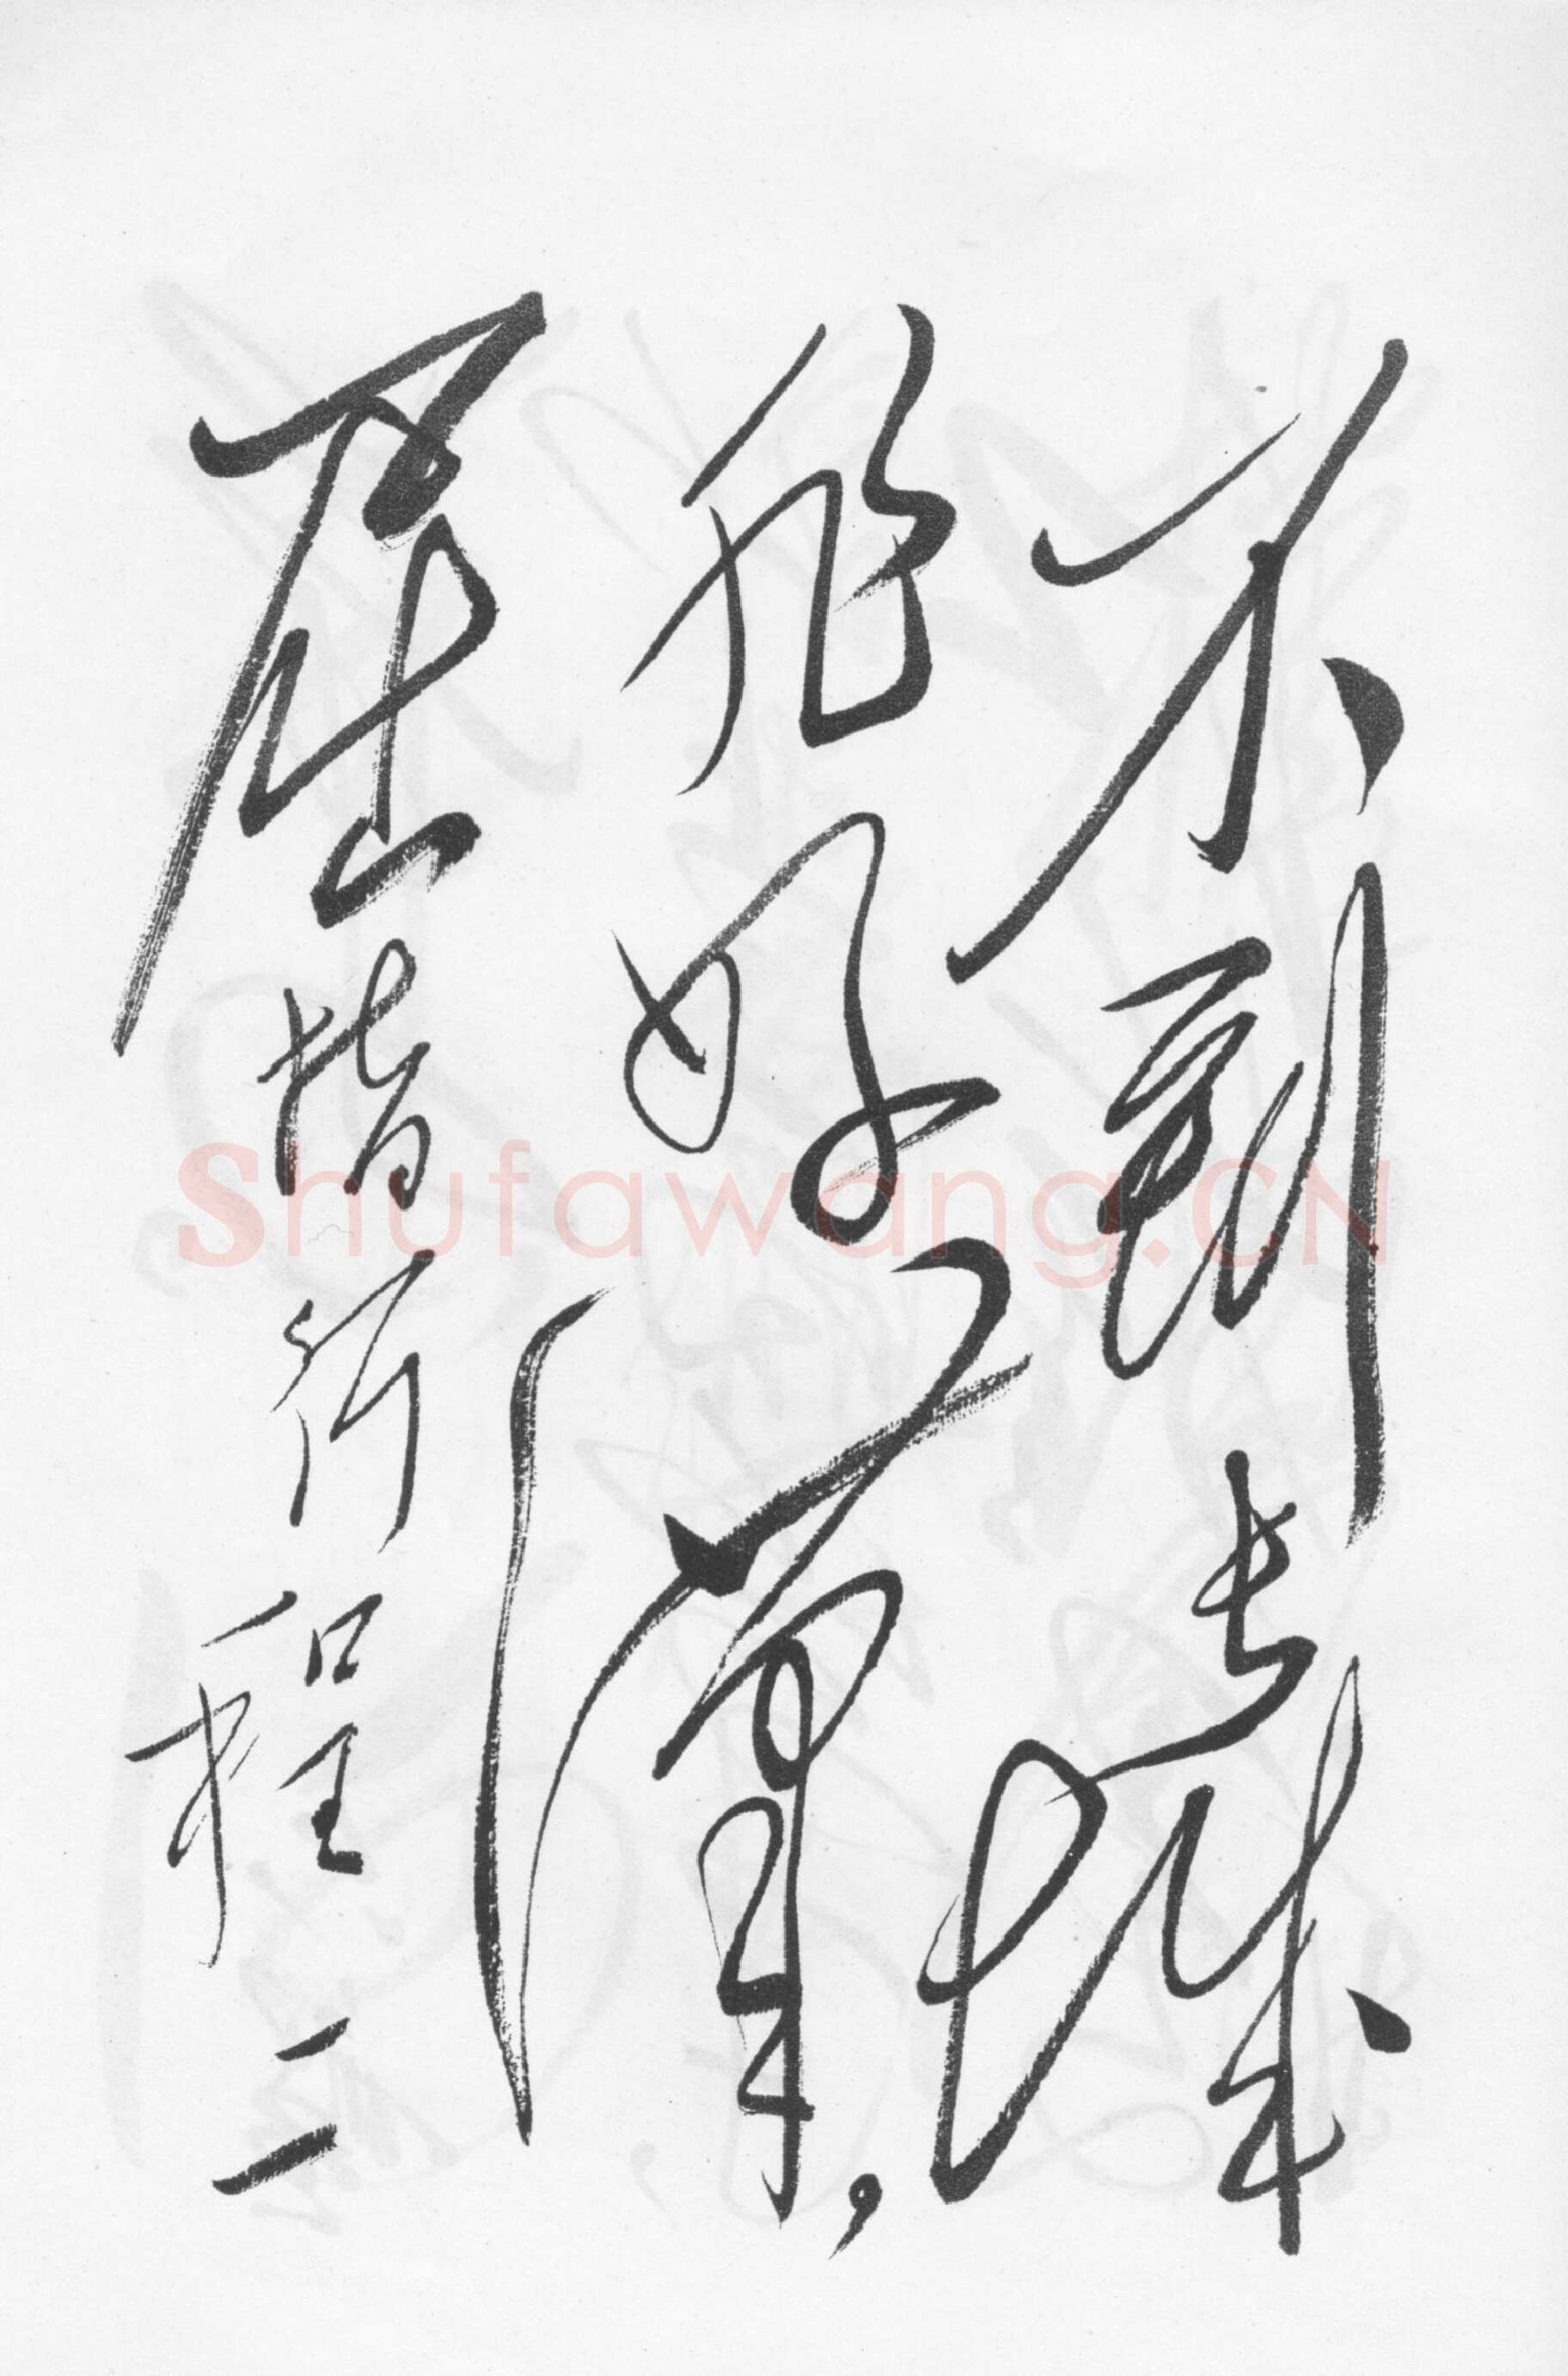 不到長城
非好漢，
屈指行程二
Shufawang.CN